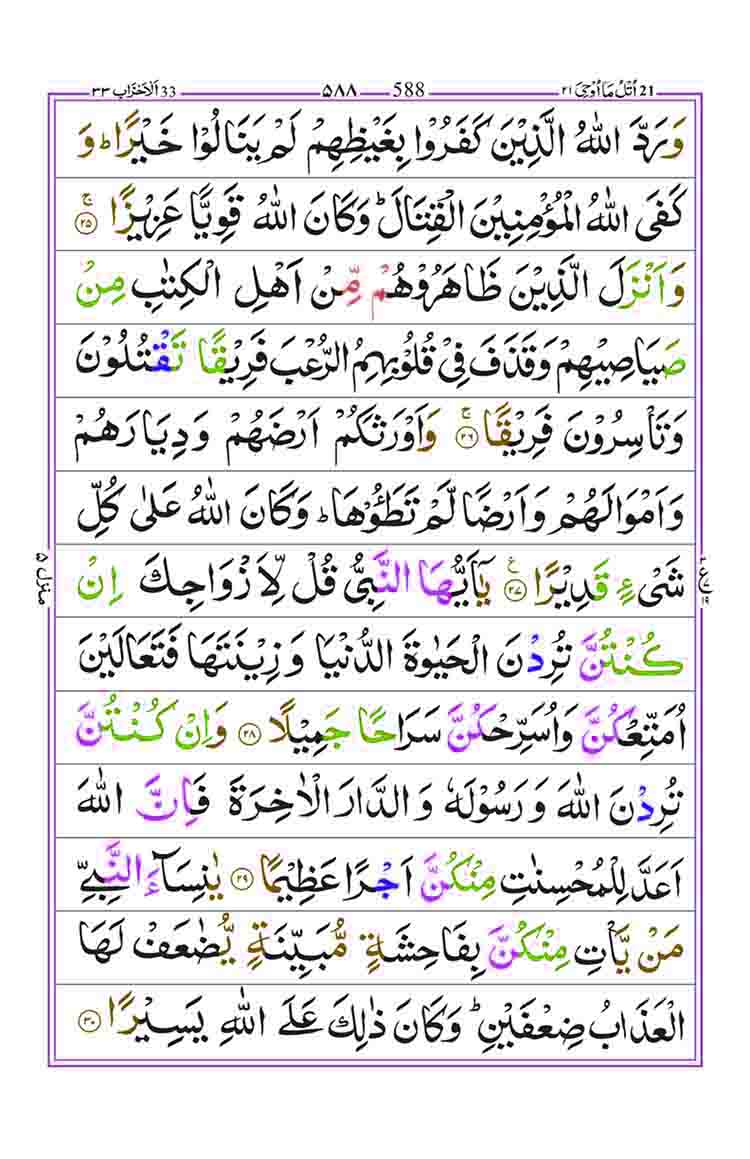 21 اُتْلُ مَاۤ اُوْحِیَ ۲۱ 588 ۵۸۸ 33 اَلْاَحْزَاب ۳۳
وَرَدَّ اللّٰهُ الَّذِیْنَ كَفَرُوْا بِغَیْظِهِمْ لَمْ یَنَالُوْا خَیْرًا ؕ وَ
كَفَی اللّٰهُ الْمُؤْمِنِیْنَ الْقِتَالَ ؕ وَكَانَ اللّٰهُ قَوِیًّا عَزِیْزًا ۚ ۲۵
وَاَنْزَلَ الَّذِیْنَ ظَاهَرُوْهُمْ مِّنْ اَهْلِ الْكِتٰبِ مِنْ
صَیَاصِیْهِمْ وَقَذَفَ فِیْ قُلُوْبِهِمُ الرُّعْبَ فَرِیْقًا تَقْتُلُوْنَ
وَتَاْسِرُوْنَ فَرِیْقًا ۚ ۲۶ وَاَوْرَثَكُمْ اَرْضَهُمْ وَدِیَارَهُمْ
وَاَمْوَالَهُمْ وَاَرْضًا لَّمْ تَطَـُٔوْهَا ؕ وَكَانَ اللّٰهُ عَلٰی كُلِّ
شَیْءٍ قَدِیْرًا ۲۷ ع یٰۤاَیُّهَا النَّبِیُّ قُلْ لِّاَزْوَاجِكَ اِنْ
كُنْتُنَّ تُرِدْنَ الْحَیٰوةَ الدُّنْیَا وَزِیْنَتَهَا فَتَعَالَیْنَ
اُمَتِّعْكُنَّ وَاُسَرِّحْكُنَّ سَرَاحًا جَمِیْلًا ۲۸ وَاِنْ كُنْتُنَّ
تُرِدْنَ اللّٰهَ وَرَسُوْلَهٗ وَالدَّارَ الْاٰخِرَةَ فَاِنَّ اللّٰهَ
اَعَدَّ لِلْمُحْسِنٰتِ مِنْكُنَّ اَجْرًا عَظِیْمًا ۲۹ یٰنِسَآءَ النَّبِیِّ
مَنْ یَّاْتِ مِنْكُنَّ بِفَاحِشَةٍ مُّبَیِّنَةٍ یُّضٰعَفْ لَهَا
الْعَذَابُ ضِعْفَیْنِ ؕ وَكَانَ ذٰلِكَ عَلَی اللّٰهِ یَسِیْرًا ۳۰
منزل ۵